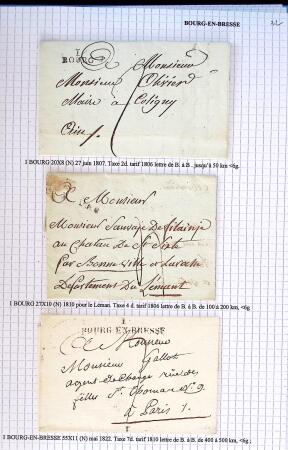 BOURG-EN-BRESSE
1
BOURG
A
Monsieur
Monsieur Olivier
Maire à Coligny
1 BOURG 20X8 (N) 27 juin 1807. Taxe 2d. tarif 1806 lettre de B. à B. jusqu'à 50 km <6g.
A Monsieur
Monsieur Sauvage De
au Chateau De St
Par Bonneville
Departement Du Léman
1 BOURG 27X10 (N) 1810 pour le Léman. Taxe 4 d. tarif 1806 lettre de B. à B. de 100 à 200 km, <6g
1
BOURG-EN-BRESSE
A Monsieur
Monsieur Gallot
agent de change rue des
filles St. Thomas No. 9
à Paris
1 BOURG-EN-BRESSE 55X11 (N) mai 1822. Taxe 7d. tarif 1810 lettre de B. à B. de 400 à 500 km, <6g ;